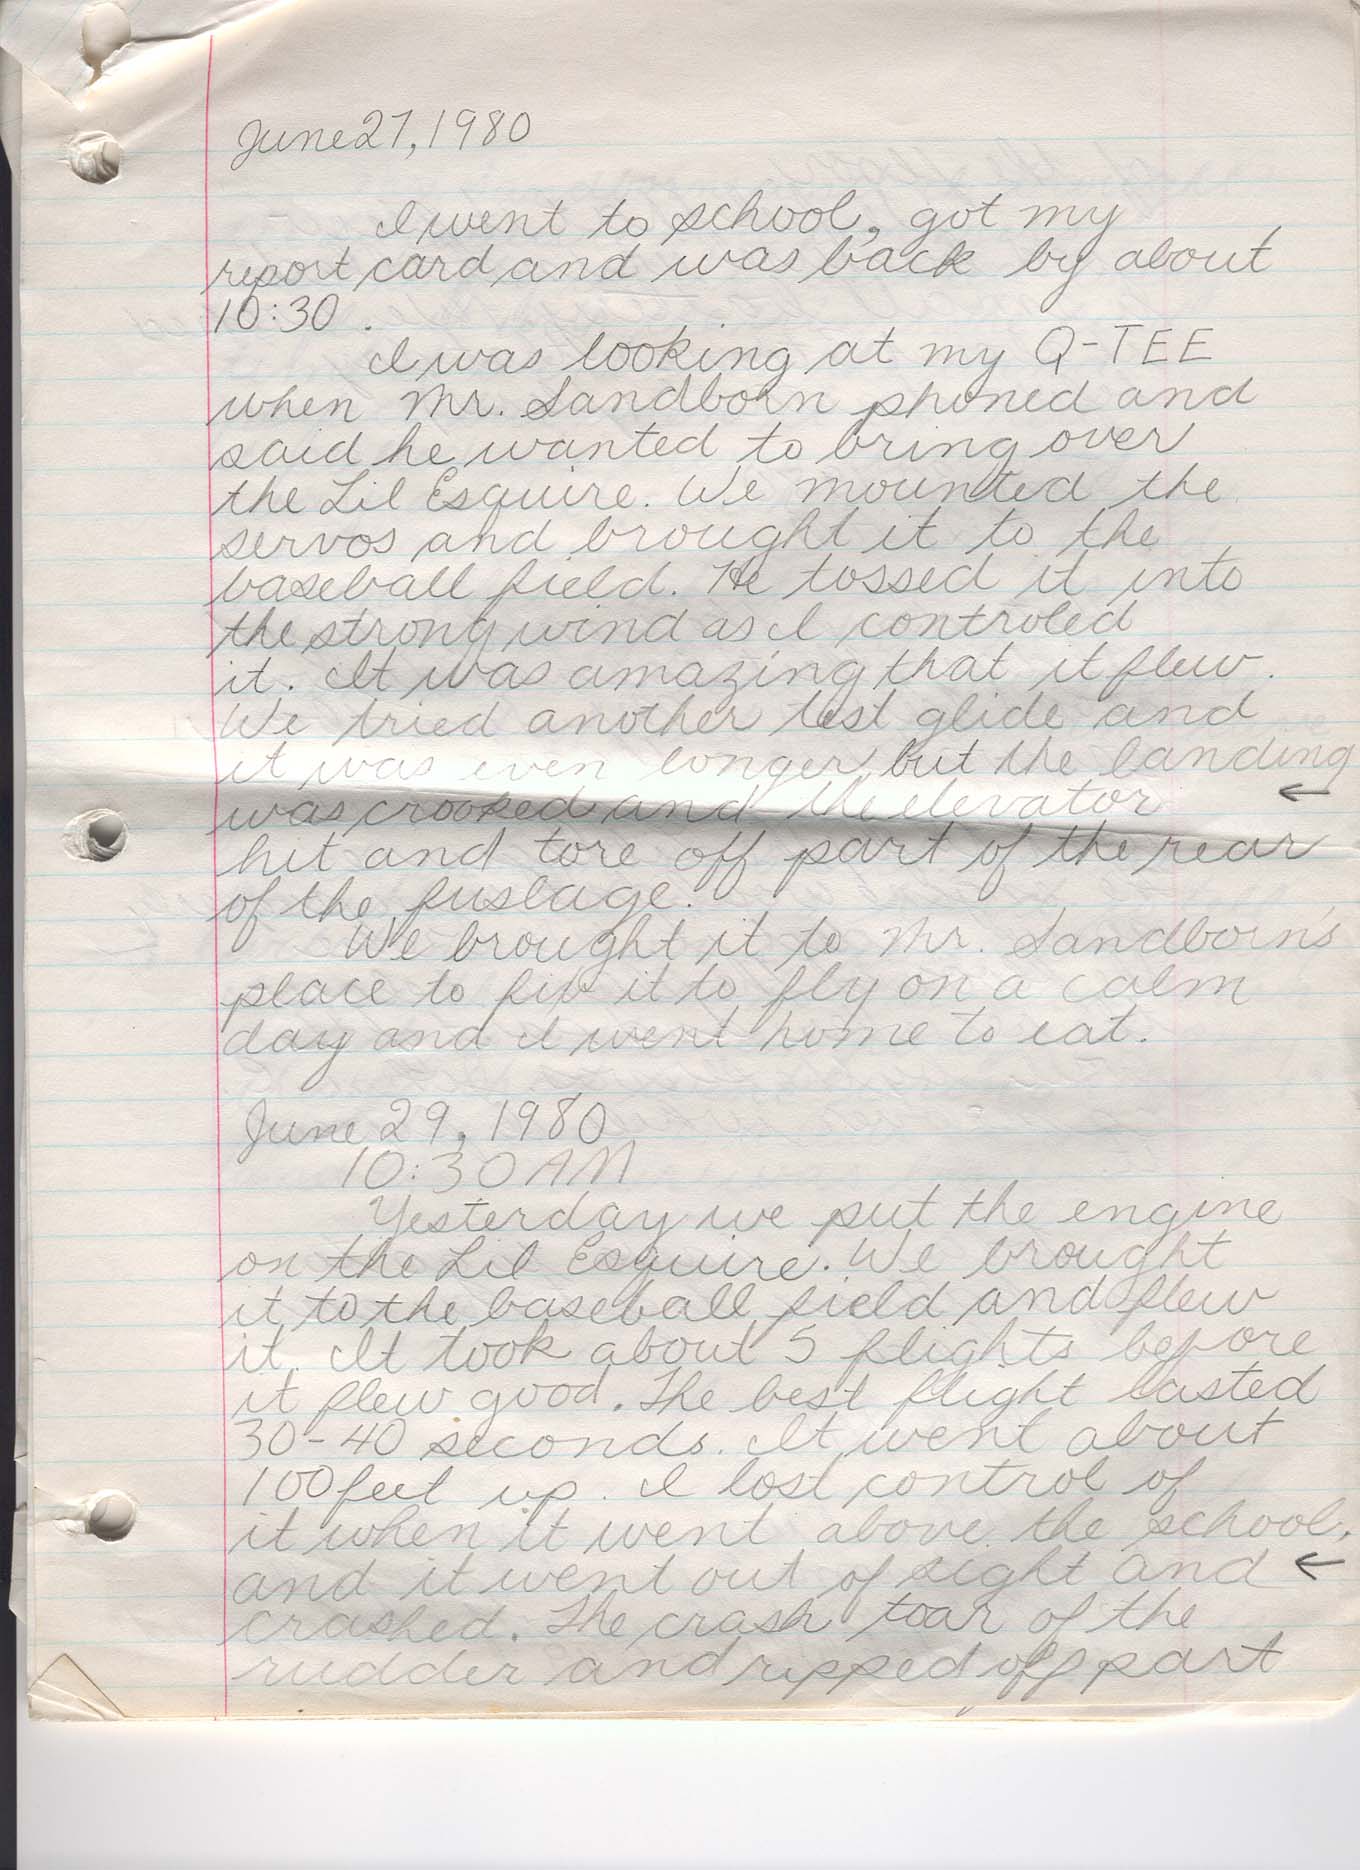 June 27, 1980
I went to school, got my
report card and was back by about
10:30.
I was looking at my Q-TEE
when Mr. Sandborn phoned and
said he wanted to bring over
the Lil Esquire. We mounted the
servos and brought it to the
baseball field. He tossed it into
the strong wind as I controled
it. It was amazing that it flew.
We tried another test glide and
it was even longer but the landing
was crooked and the elevator ←
hit and tore off part of the rear
of the fuslage.
We brought it to Mr. Sandborn's
place to fix it to fly on a calm
day and I went home to eat.
June 29, 1980
10:30 AM
Yesterday we put the engine
on the Lil Esquire. We brought
it to the baseball field and flew
it. It took about 5 flights before
it flew good. The best flight lasted
30-40 seconds. It went about
100 feet up. I lost control of
it when it went above the school,
and it went out of sight and ←
crashed. The crash toar of the
rudder and ripped off part